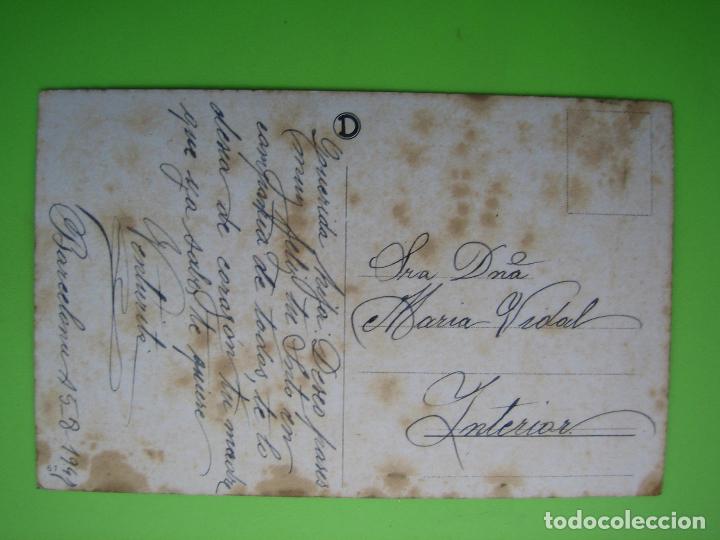 Querida hija: Deseo pases
muy feliz tu Santo en
compañia de todos, te lo
desea de corazón tu madre
que ya sabes te quiere
Venturita
Barcelona A 5-8-1941
D
Sra Dña
Maria Vidal
Interior
61
todocoleccion.net